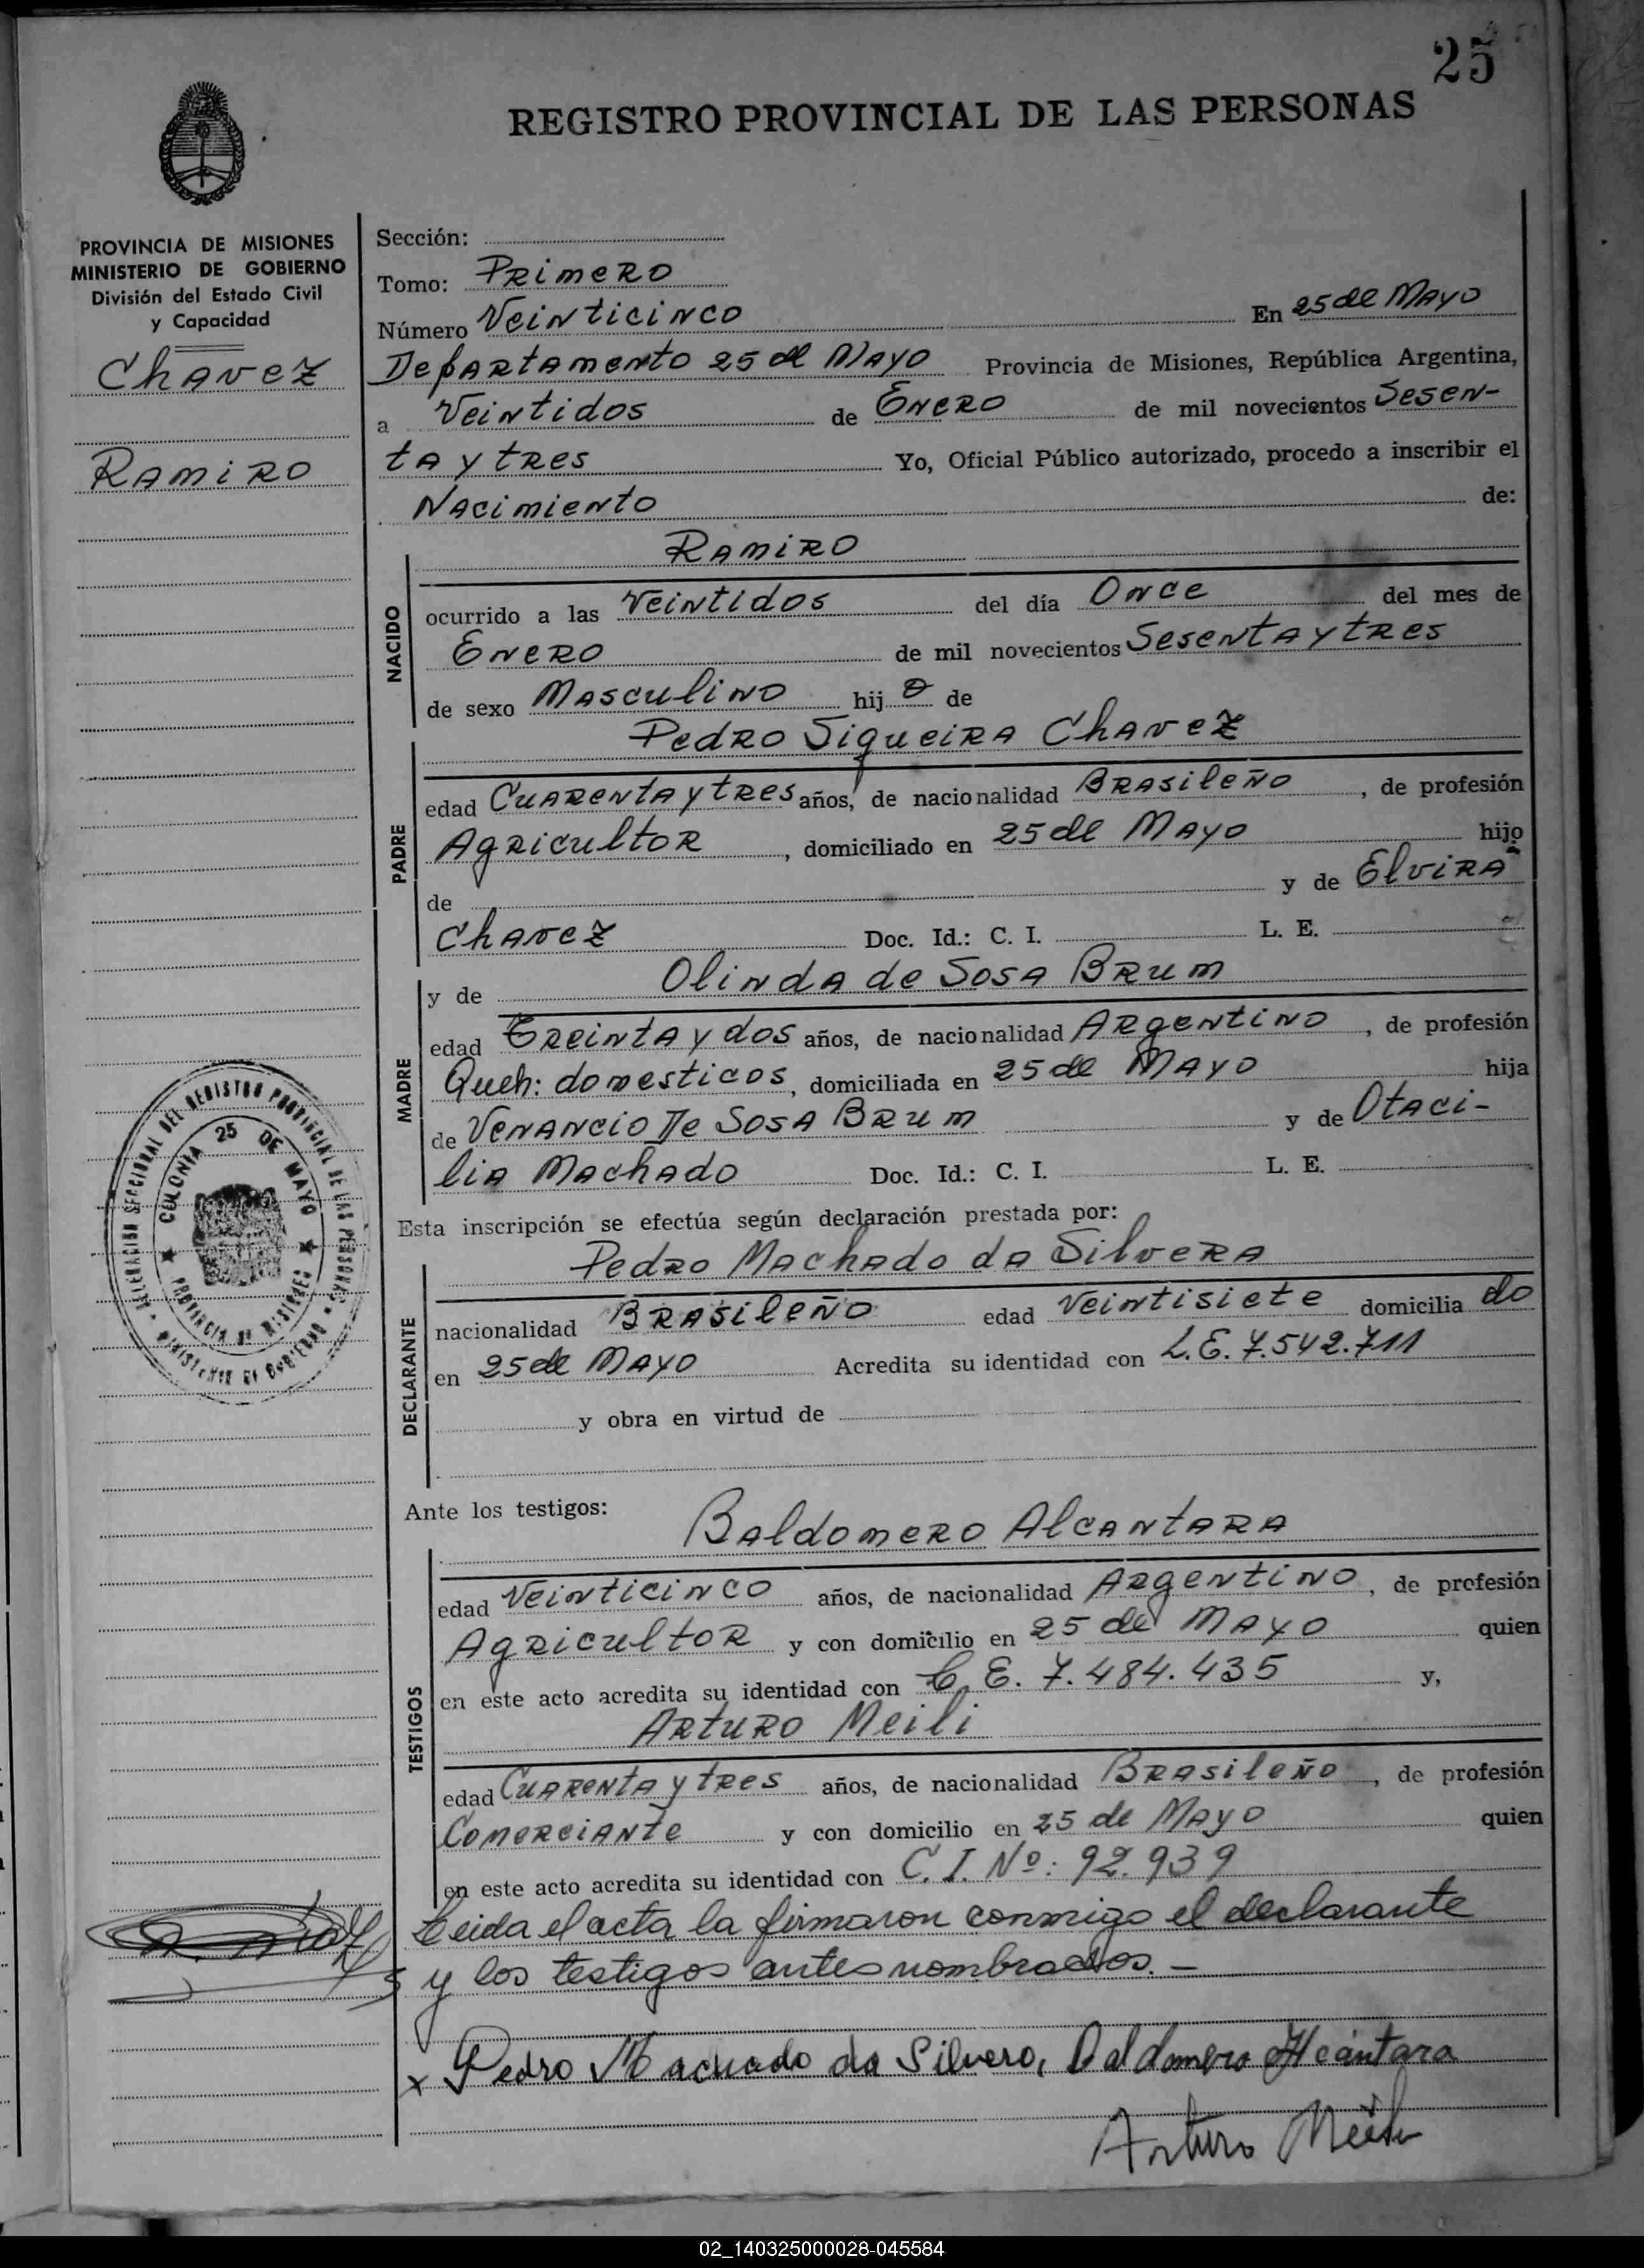 25
REGISTRO PROVINCIAL DE LAS PERSONAS
PROVINCIA DE MISIONES
MINISTERIO DE GOBIERNO
División del Estado Civil
y Capacidad
Chavez
Ramiro
Sección:
Tomo: Primero
Número Veinticinco En 25 de Mayo
Departamento 25 de Mayo Provincia de Misiones, República Argentina,
a Veintidos de Enero de mil novecientos Sesen-
ta y tres Yo, Oficial Público autorizado, procedo a inscribir el
Nacimiento de:
NACIDO
Ramiro
ocurrido a las Veintidos del día Once del mes de
Enero de mil novecientos Sesenta y tres
de sexo Masculino hij o de
PADRE
Pedro Siqueira Chavez
edad Cuarenta y tres años, de nacionalidad Brasileño, de profesión
Agricultor, domiciliado en 25 de Mayo hijo
de y de Elvira
Chavez Doc. Id.: C. I. L. E.
MADRE
y de Olinda de Sosa Brum
edad Treinta y dos años, de nacionalidad Argentino, de profesión
Queh: domesticos, domiciliada en 25 de Mayo hija
de Venancio De Sosa Brum y de Otaci-
lia Machado Doc. Id.: C. I. L. E.
Esta inscripción se efectúa según declaración prestada por:
DECLARANTE
Pedro Machado da Silvera
nacionalidad Brasileño edad Veintisiete domicilia do
en 25 de Mayo Acredita su identidad con L.E. 7.542.711
y obra en virtud de
Ante los testigos:
TESTIGOS
Baldomero Alcantara
edad Veinticinco años, de nacionalidad Argentino, de profesión
Agricultor y con domicilio en 25 de Mayo quien
en este acto acredita su identidad con L. E. 7.484.435 y,
Arturo Meili
edad Cuarenta y tres años, de nacionalidad Brasileño, de profesión
Comerciante y con domicilio en 25 de Mayo quien
en este acto acredita su identidad con C. I. Nº: 92.939
Leida el acta la firmaron conmigo el declarante
y los testigos antes nombrados. -
x Pedro Machado da Silvero, Baldomero Alcántara
Arturo Meili
DELEGACION SECCIONAL DEL REGISTRO PROVINCIAL DE LAS PERSONAS
MINISTERIO DE GOBIERNO
COLONIA 25 DE MAYO
PROVINCIA DE MISIONES
02_140325000028-045584